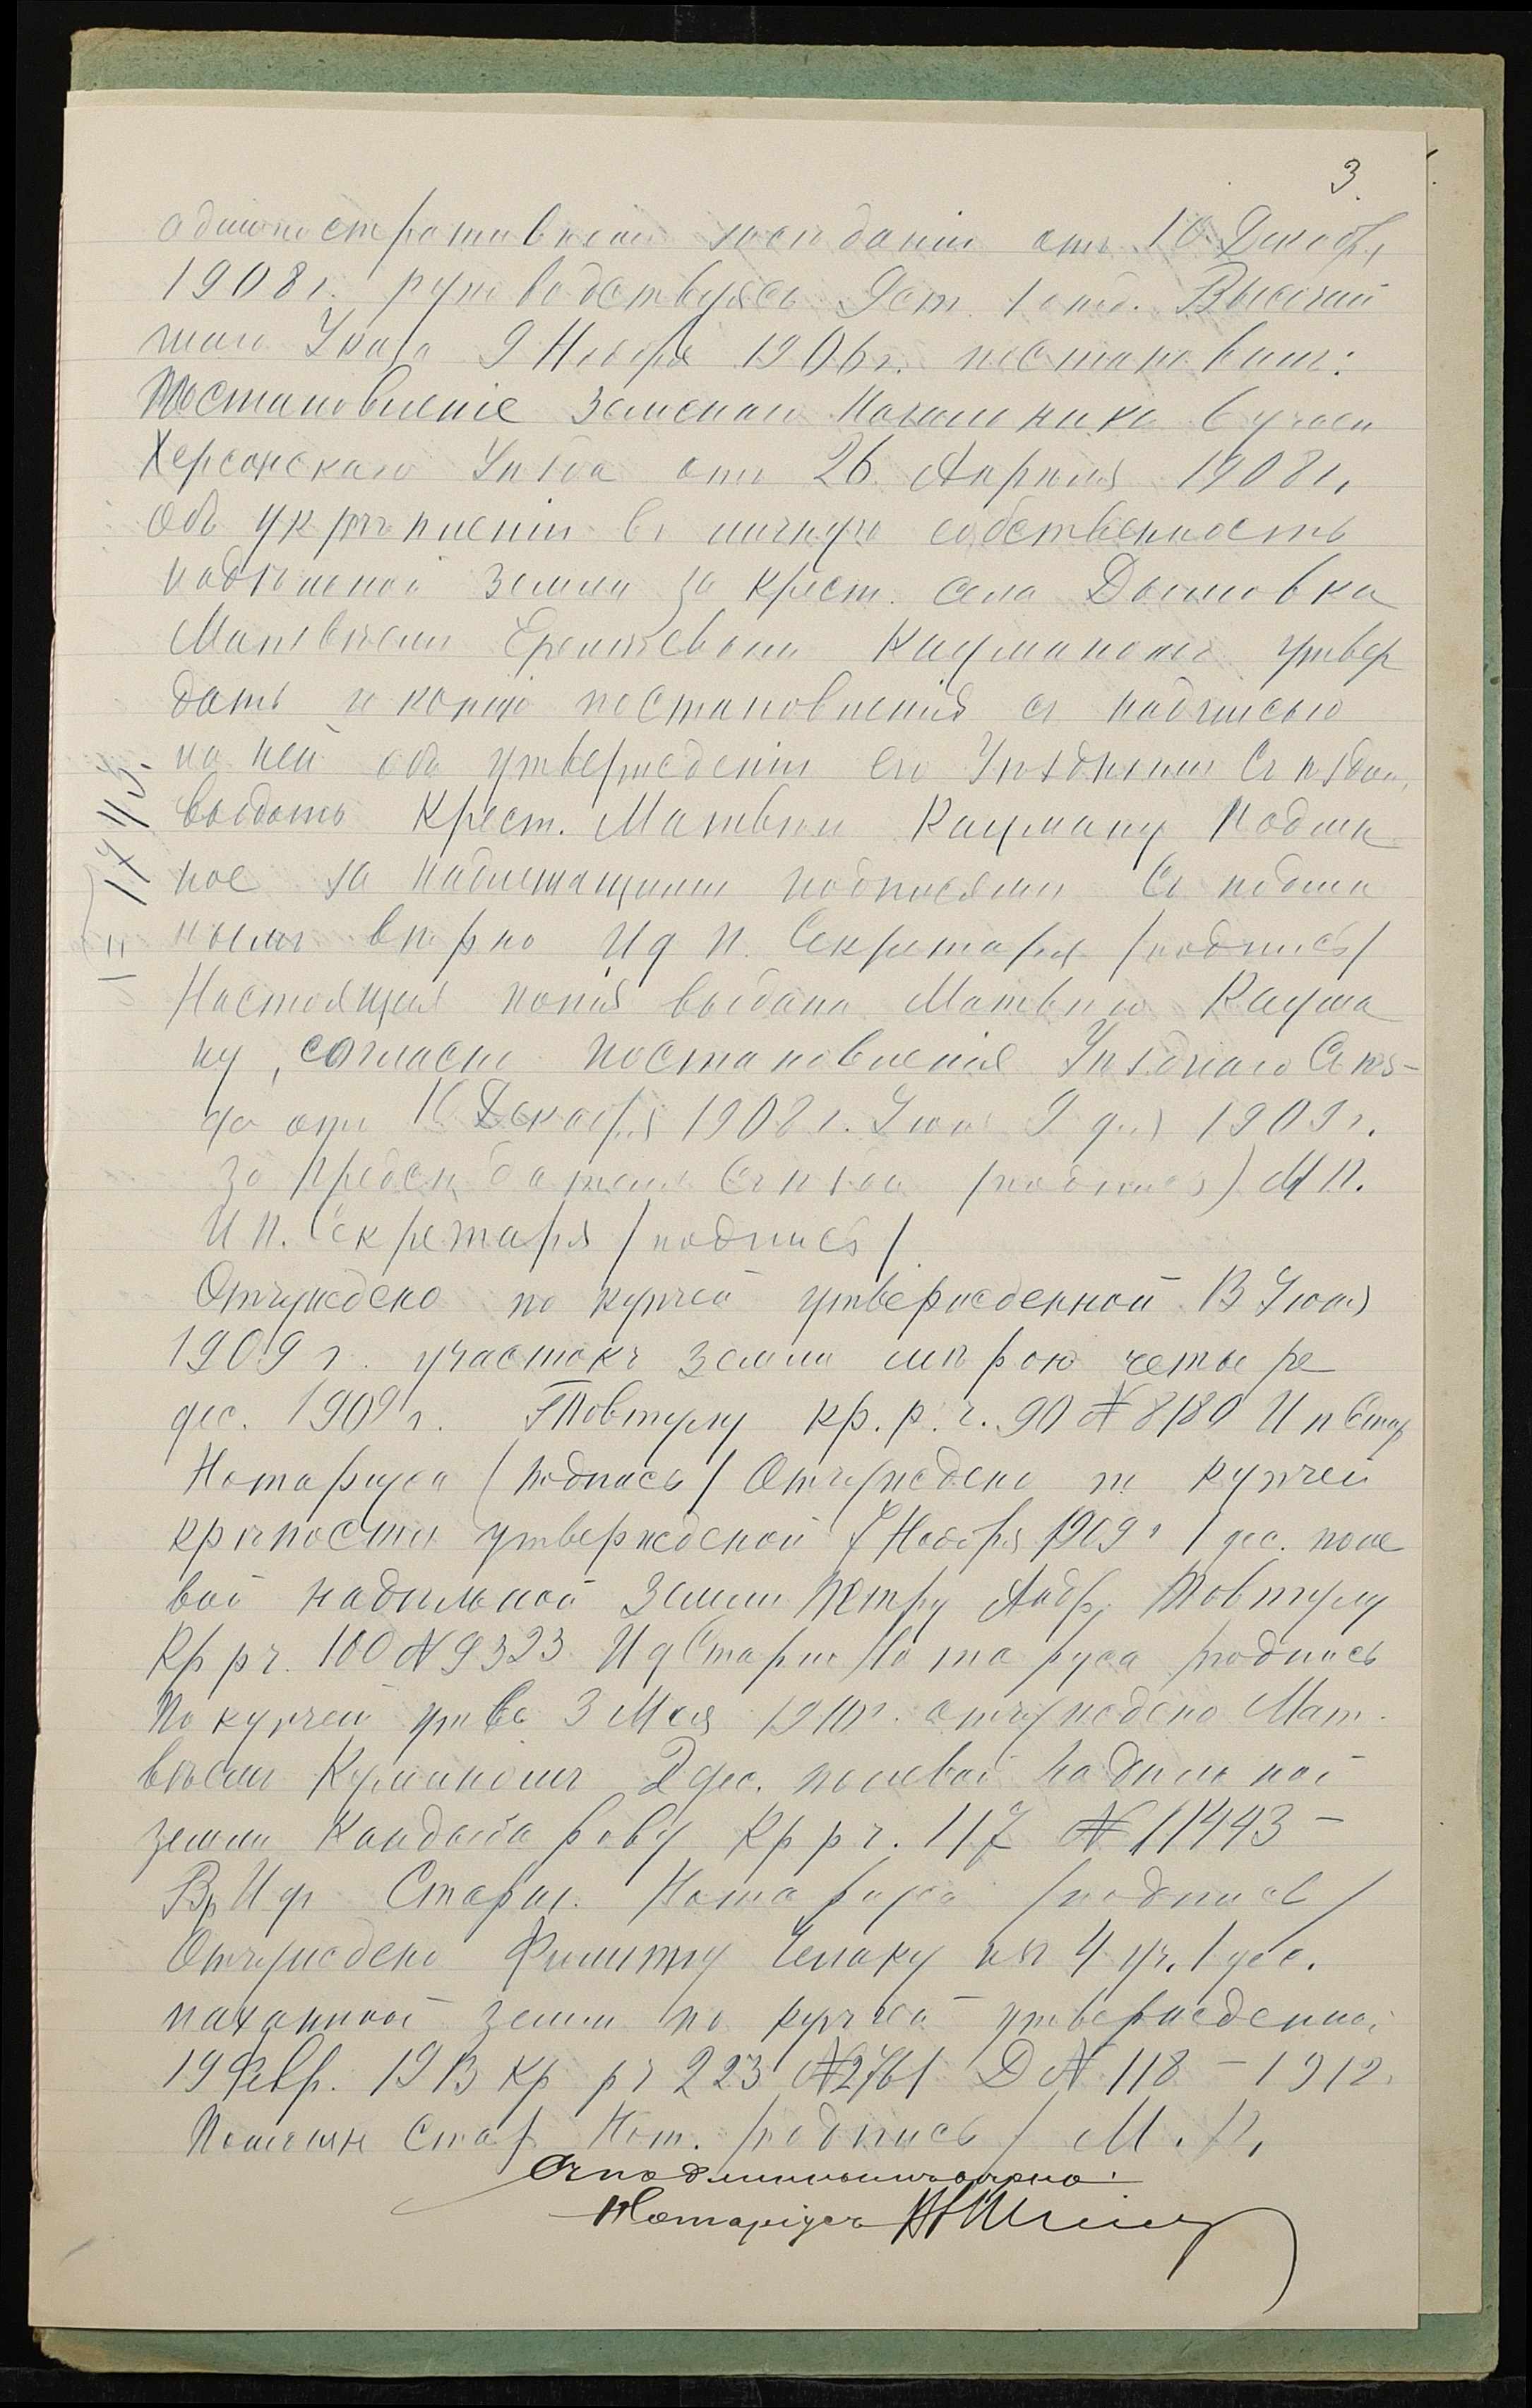 3.
административномъ засѣданіи отъ 10 Декабр.
1908 г. руководствуясь 9 ст. 1 отд. Высочай
шаго Указа 9 Ноября 1906 г. постановилъ:
Постановленіе Земскаго Начальника 6 участ
Херсонскаго Уѣзда отъ 26 Апрѣля 1908 г.
объ укрѣпленіи въ личную собственность
надѣльной земли за крест. села
Матвѣемъ Кауманомъ утвер
дить и копію постановленія съ надписью
на ней объ утвержденіи его Уѣзднымъ Съѣздомъ
выдать Крест. Матвѣю Кауману Подлин
ное за надлежащими подписями Съ подлин
нымъ вѣрно И д н. Секретаря /подпись/
Настоящая копія выдана Матвѣю Каума
ну, согласно постановленія Уѣзднаго Съѣз-
да отъ 10 Декабря 1908 г. 9 дня 1909 г.
За Предсѣдателя Съѣзда (подпись) М П.
И п. Секретаря /подпись/
Отчуждено по купчей утвержденной 13
1909 г. участокъ земли мѣрою четыре
дес. 1909 г. Товтулу кр. р. ч. 90 № 8180 И п Стар
Нотаріуса /подпись/ Отчуждено по купчей
крѣпости утвержденной 7 Ноября 1909 г 1 дес. поле
вой надѣльной земли Петру Андр. Товтулу
Кр р ч. 100 № 9323 И д Старш Нотаріуса подпись
По купчей утвь 3 Мая отчуждено Мат-
вѣемъ Куманомъ 2 дес. полевой надѣльной
земли Кр р ч. 117 № 11443 –
Вр И д Старш. Нотаріуса /подпись/
Отчуждено Филиппу 4 уч. 1 дес.
пахатной земли по купчей утвержденной
19 Февр. 1913 кр рч 223 № 2761 Д № 118 – 1912.
Помощн Стар Нот. /подпись/ М. П.
Съ подлиннымъ вѣрно:
Нотаріусъ